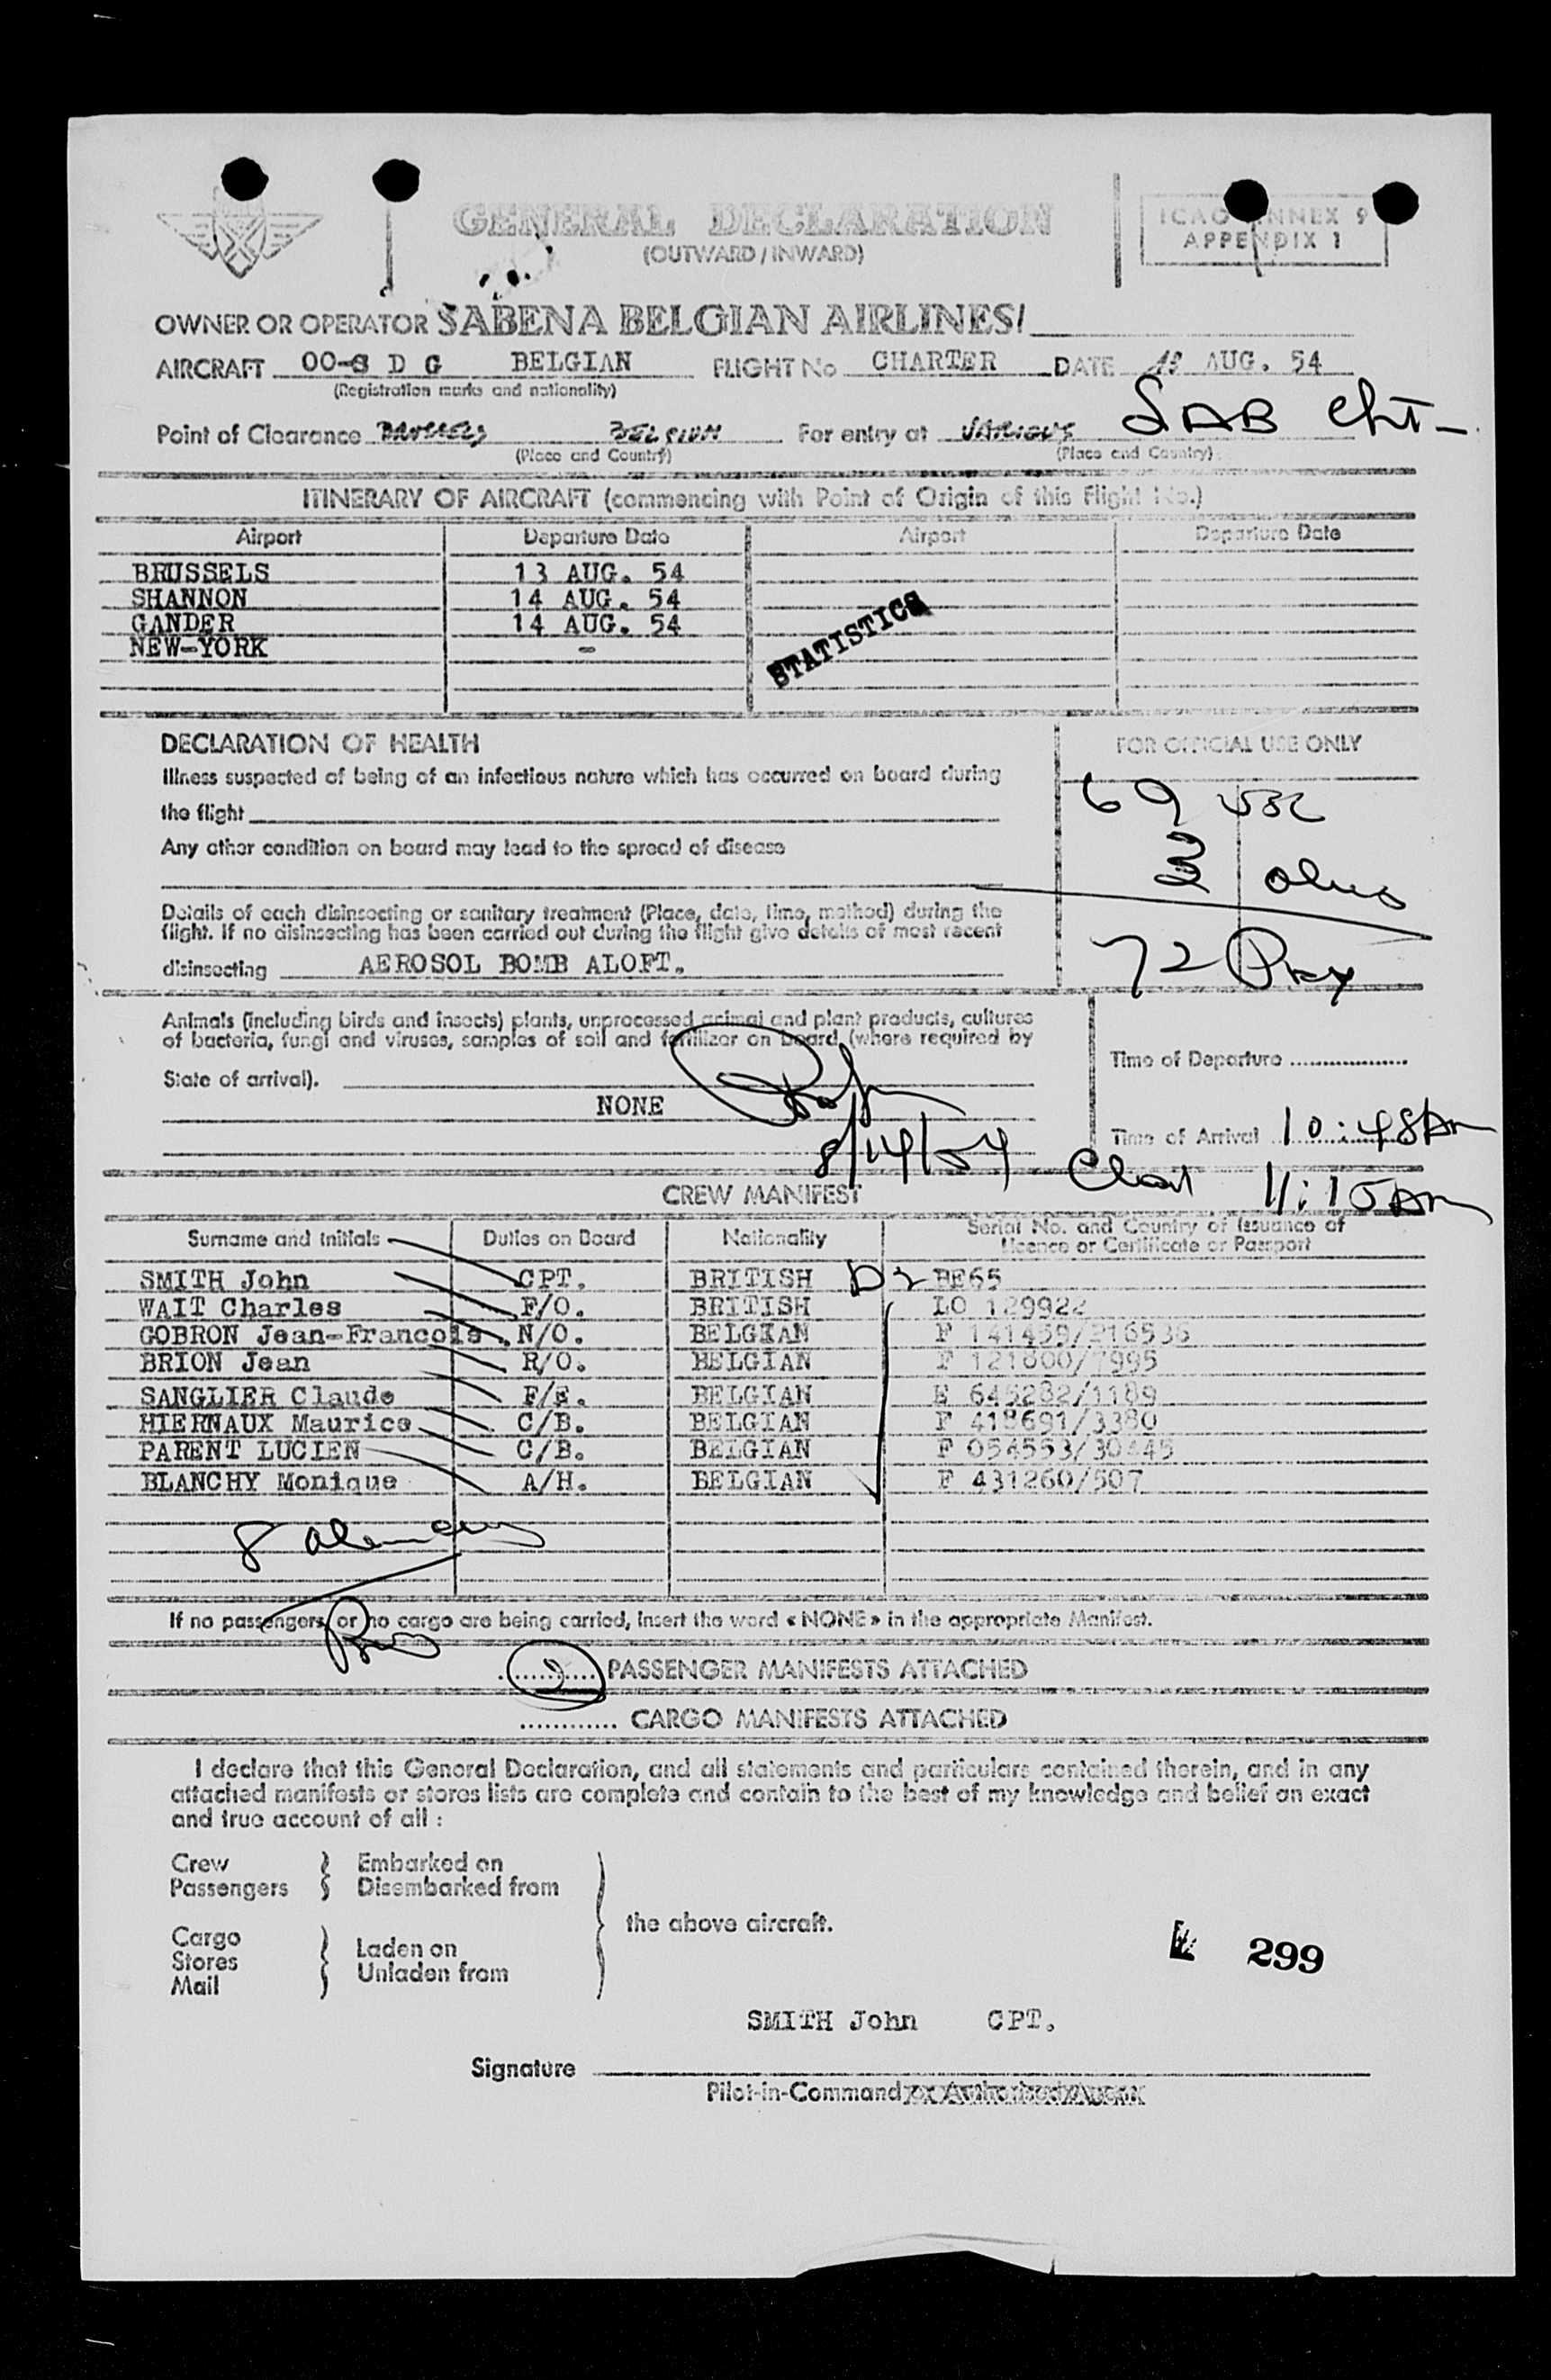 GENERAL DECLARATION
(OUTWARD / INWARD)
ICAO ANNEX 9
APPENDIX 1
OWNER OR OPERATOR SABENA BELGIAN AIRLINES/
AIRCRAFT OO-S D G BELGIAN FLIGHT No CHARTER DATE 13 AUG. 54
(Registration marks and nationality)
SAB Cht-
Point of Clearance BRUSSELS BELGIUM For entry at VARIOUS
(Place and Country) (Place and Country)
ITINERARY OF AIRCRAFT (commencing with Point of Origin of this Flight No.)
Airport Departure Date Airport Departure Date
BRUSSELS 13 AUG. 54
SHANNON 14 AUG. 54
GANDER 14 AUG. 54
NEW-YORK -
STATISTICS
DECLARATION OF HEALTH
FOR OFFICIAL USE ONLY
Illness suspected of being of an infectious nature which has occurred on board during
the flight
69 USC
Any other condition on board may lead to the spread of disease
3
Details of each disinsecting or sanitary treatment (Place, date, time, method) during the
flight. If no disinsecting has been carried out during the flight give details of most recent
disinsecting AEROSOL BOMB ALOFT.
72
Animals (including birds and insects) plants, unprocessed animal and plant products, cultures
of bacteria, fungi and viruses, samples of soil and fertilizer on board, (where required by
State of arrival).
NONE
Time of Departure
8/14/54
Time of Arrival 10:48 Am
11:15 Am
CREW MANIFEST
Surname and Initials Duties on Board Nationality Serial No. and Country of Issuance of
Licence or Certificate or Passport
SMITH John CPT. BRITISH D2 BE65
WAIT Charles F/O. BRITISH LO 129922
GOBRON Jean-Francois N/O. BELGIAN F 141459/216536
BRION Jean R/O. BELGIAN F 121800/7995
SANGLIER Claude F/E. BELGIAN E 645282/1189
HIERNAUX Maurice C/B. BELGIAN F 418691/3380
PARENT LUCIEN C/B. BELGIAN F 054553/30445
BLANCHY Monique A/H. BELGIAN F 431260/507
8
If no passengers or no cargo are being carried, insert the word «NONE» in the appropriate Manifest.
2 PASSENGER MANIFESTS ATTACHED
............ CARGO MANIFESTS ATTACHED
I declare that this General Declaration, and all statements and particulars contained therein, and in any
attached manifests or stores lists are complete and contain to the best of my knowledge and belief an exact
and true account of all :
Crew Embarked on
Passengers Disembarked from
the above aircraft.
Cargo
Stores Laden on
Mail Unladen from
299
SMITH John CPT.
Signature
Pilot-in-Command or Authorized Agent